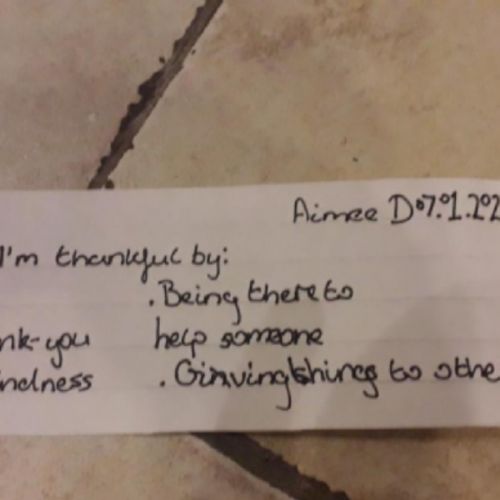 Aimee D 07.01.202
I'm thankful by:
. Being there to
nk-you help someone
indness . Ginving things to othe